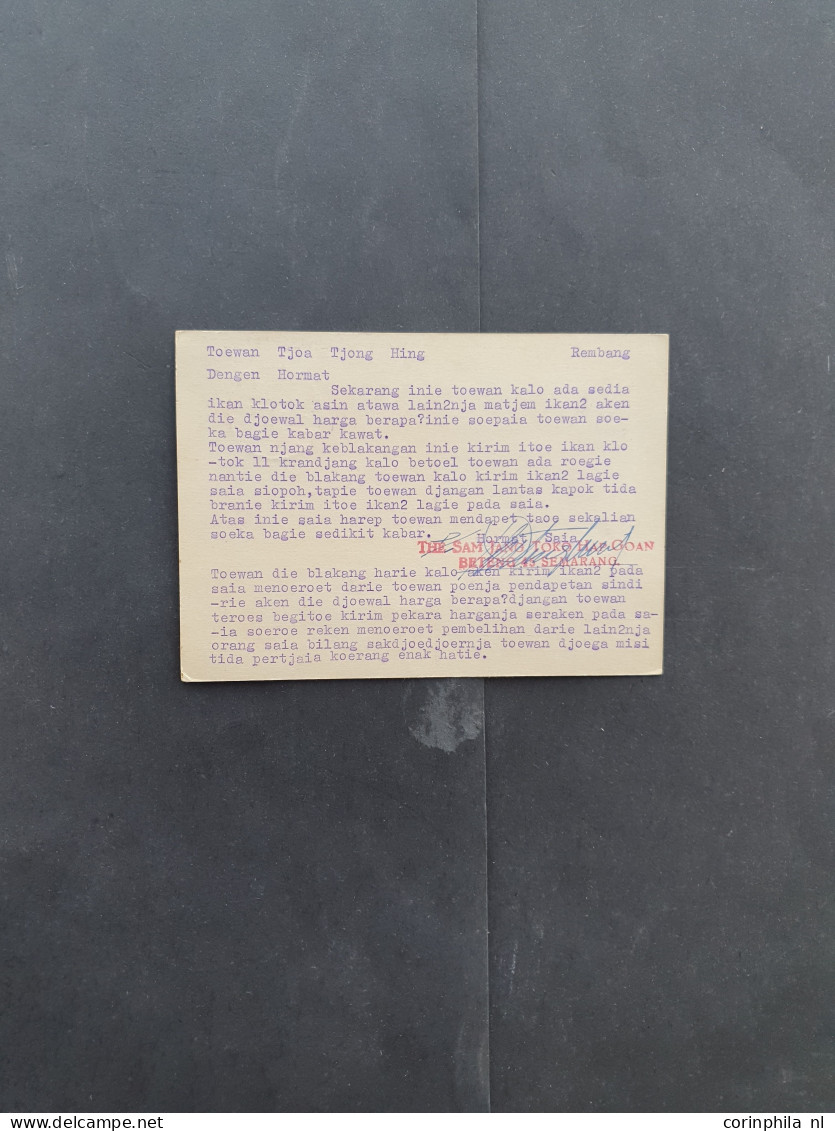 Toewan Tjoa Tjong Hing Rembang
Dengen Hormat
Sekarang inie toewan kalo ada sedia
ikan klotok asin atawa lain2nja matjem ikan2 aken
die djoewal harga berapa?inie soepaia toewan soe-
ka bagie kabar kawat.
Toewan njang keblakangan inie kirim itoe ikan klo
-tok 11 krandjang kalo betoel toewan ada roegie
nantie die blakang toewan kalo kirim ikan2 lagie
saia siopoh,tapie toewan djangan lantas kapok tida
branie kirim itoe ikan2 lagie pada saia.
Atas inie saia harep toewan mendapet taoe sekalian
soeka bagie sedikit kabar. Hormat Saia
THE SAM JANG TOKO
SEMARANG.
Toewan die blakang harie kalo aken kirim ikan2 pada
saia menoeroet darie toewan poenja pendapetan sindi
-rie aken die djoewal harga berapa?djangan toewan
teroes begitoe kirim pekara harganja seraken pada sa-
-ia soeroe reken menoeroet pembelihan darie lain2nja
orang saia bilang sakdjoedjoernja toewan djoega misi
tida pertjaia koerang enak hatie.
www.delcampe.net
corinphila nl